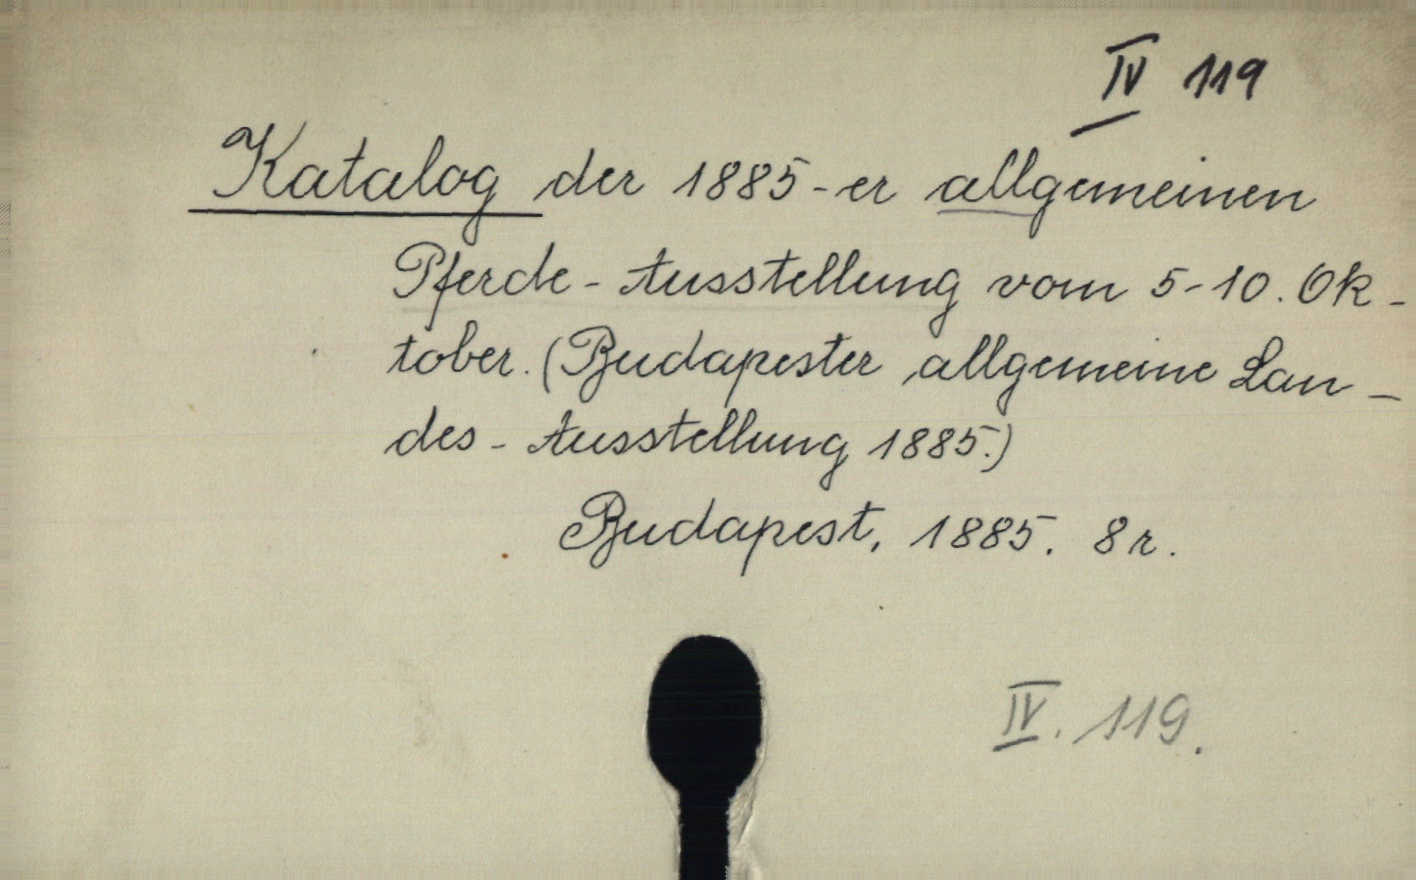 IV 119
Katalog der 1885-er allgemeinen
Pferde-Ausstellung vom 5-10. Ok-
tober. (Budapester allgemeine Lan-
des-Ausstellung 1885.)
Budapest, 1885. 8r.
IV. 119.